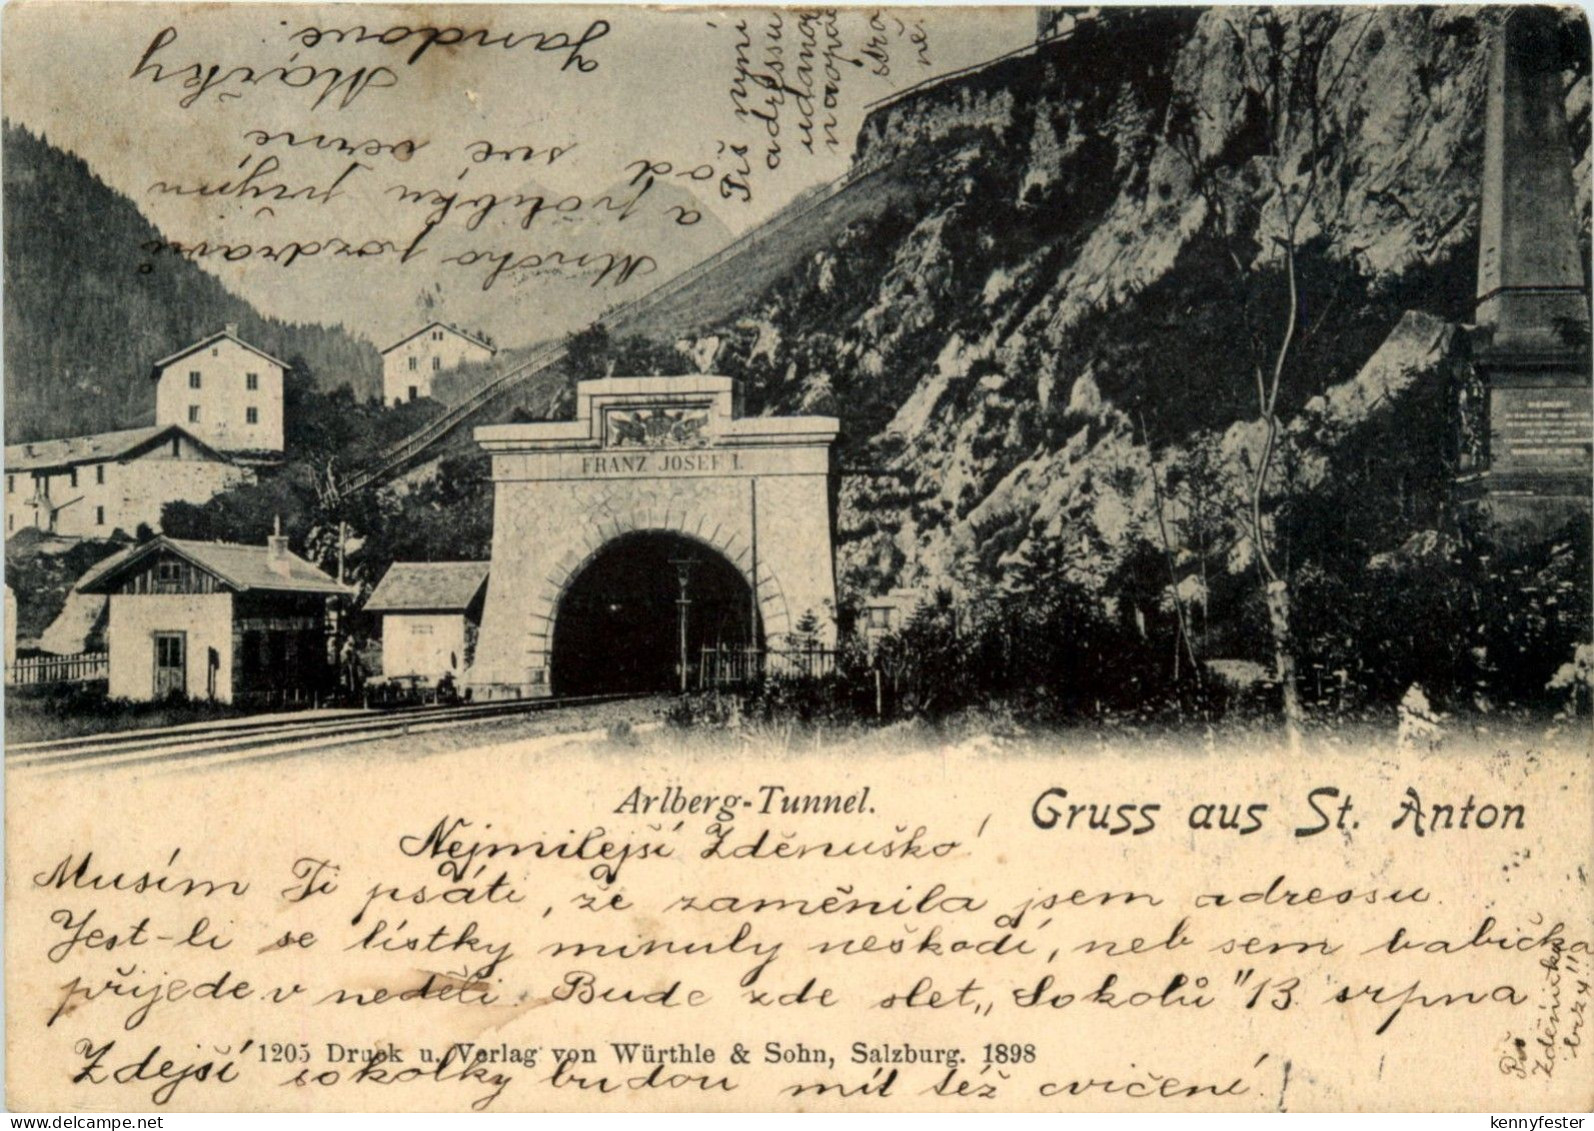 FRANZ JOSEF I.
Arlberg-Tunnel.
Gruss aus St. Anton
Nejmilejší Zděnuško!
Musím Ti psáti, že zaměnila jsem adressu.
Jest-li se lístky minuly neškodí, neb sem babička
přijede v neděli. Bude zde slet „Sokolů" 13. srpna
Zdejší sokolky budou mít též cvičení!
1205 Druck u. Verlag von Würthle & Sohn, Salzburg. 1898
Piš
Zděnuško
brzy!!
Mnoho pozdravů
a políbku přijmi
od své věrné
Mařky
Jandové.
Piš nyní
adressu
udanou
naopáč
stra
ně.
kennyfester